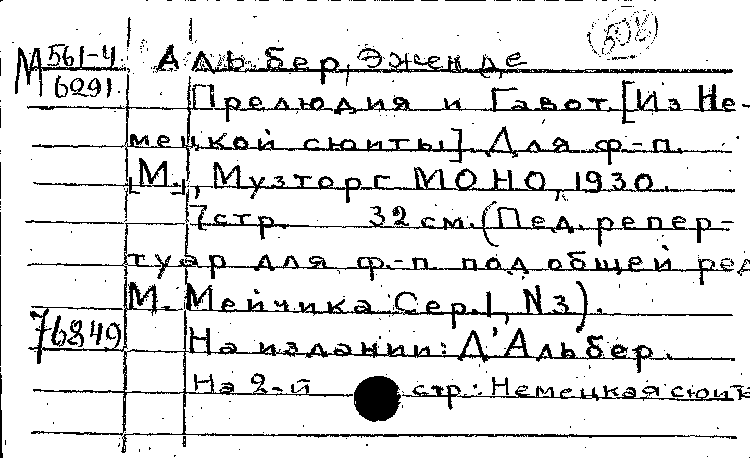 М 561-4
6291
Альбер, Эжен де
Прелюдия и Гавот. [Из Не-
мецкой сюиты]. Для ф-п.
[М.], Музторг МОНО, 1930.
7 стр. 32 см. (Пед. репер-
туар для ф-п под общей ред
М. Мейчика Сер. I, N 3).
76849
На издании: Д'Альбер.
На 2-й стр.: Немецкая сюит